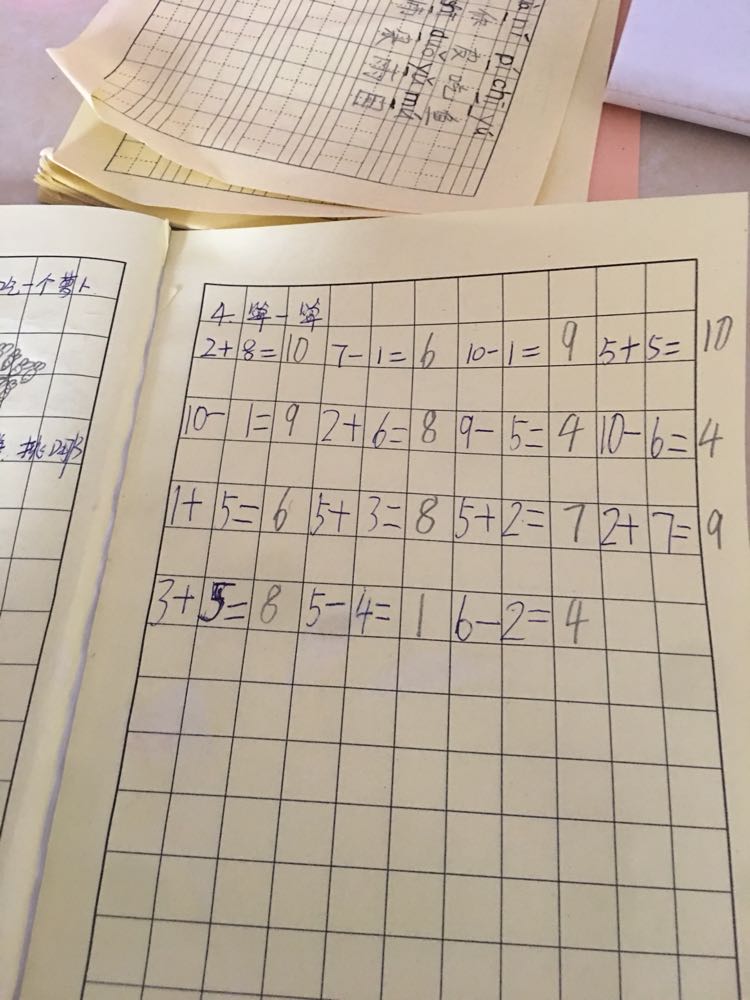 pí chī yú
皮 吃 鱼
雨
吃一个萝卜
4. 算一算
2+8=10 7-1=6 10-1=9 5+5=10
10-1=9 2+6=8 9-5=4 10-6=4
1+5=6 5+3=8 5+2=7 2+7=9
3+5=8 5-4=1 6-2=4